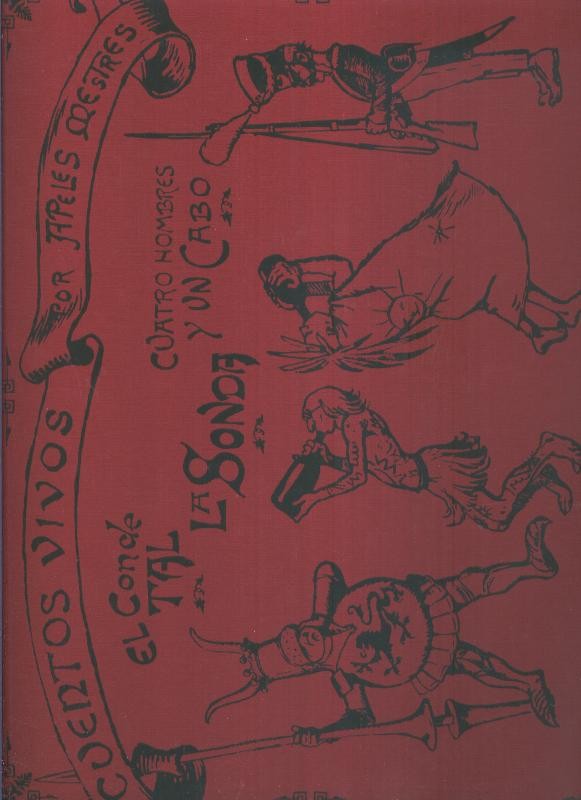 CUENTOS VIVOS
POR APELES MESTRES
EL Conde
TAL
LA SONDA
CUATRO HOMBRES
Y UN CABO